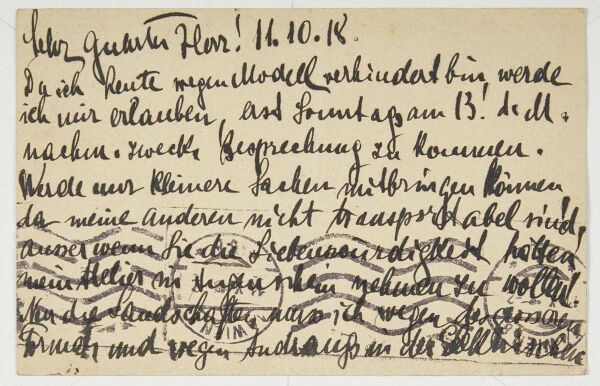 Sehr geehrter Herr! 11.10.18.
Da ich heute wegen Modell verhindert bin, werde
ich mir erlauben, erst Sonntags am 13. d. M.
nachm. zwecks Besprechung zu kommen.
Werde nur kleinere Sachen mitbringen können
da meine anderen nicht transportabel sind,
ausser wenn Sie die Liebenswürdigkeit hätten
mein Atelier in Augenschein nehmen zu wollen.
Nur die Landschaften muss ich wegen des grossen
Formats und wegen Andrangs in der Elektrischen
WIEN